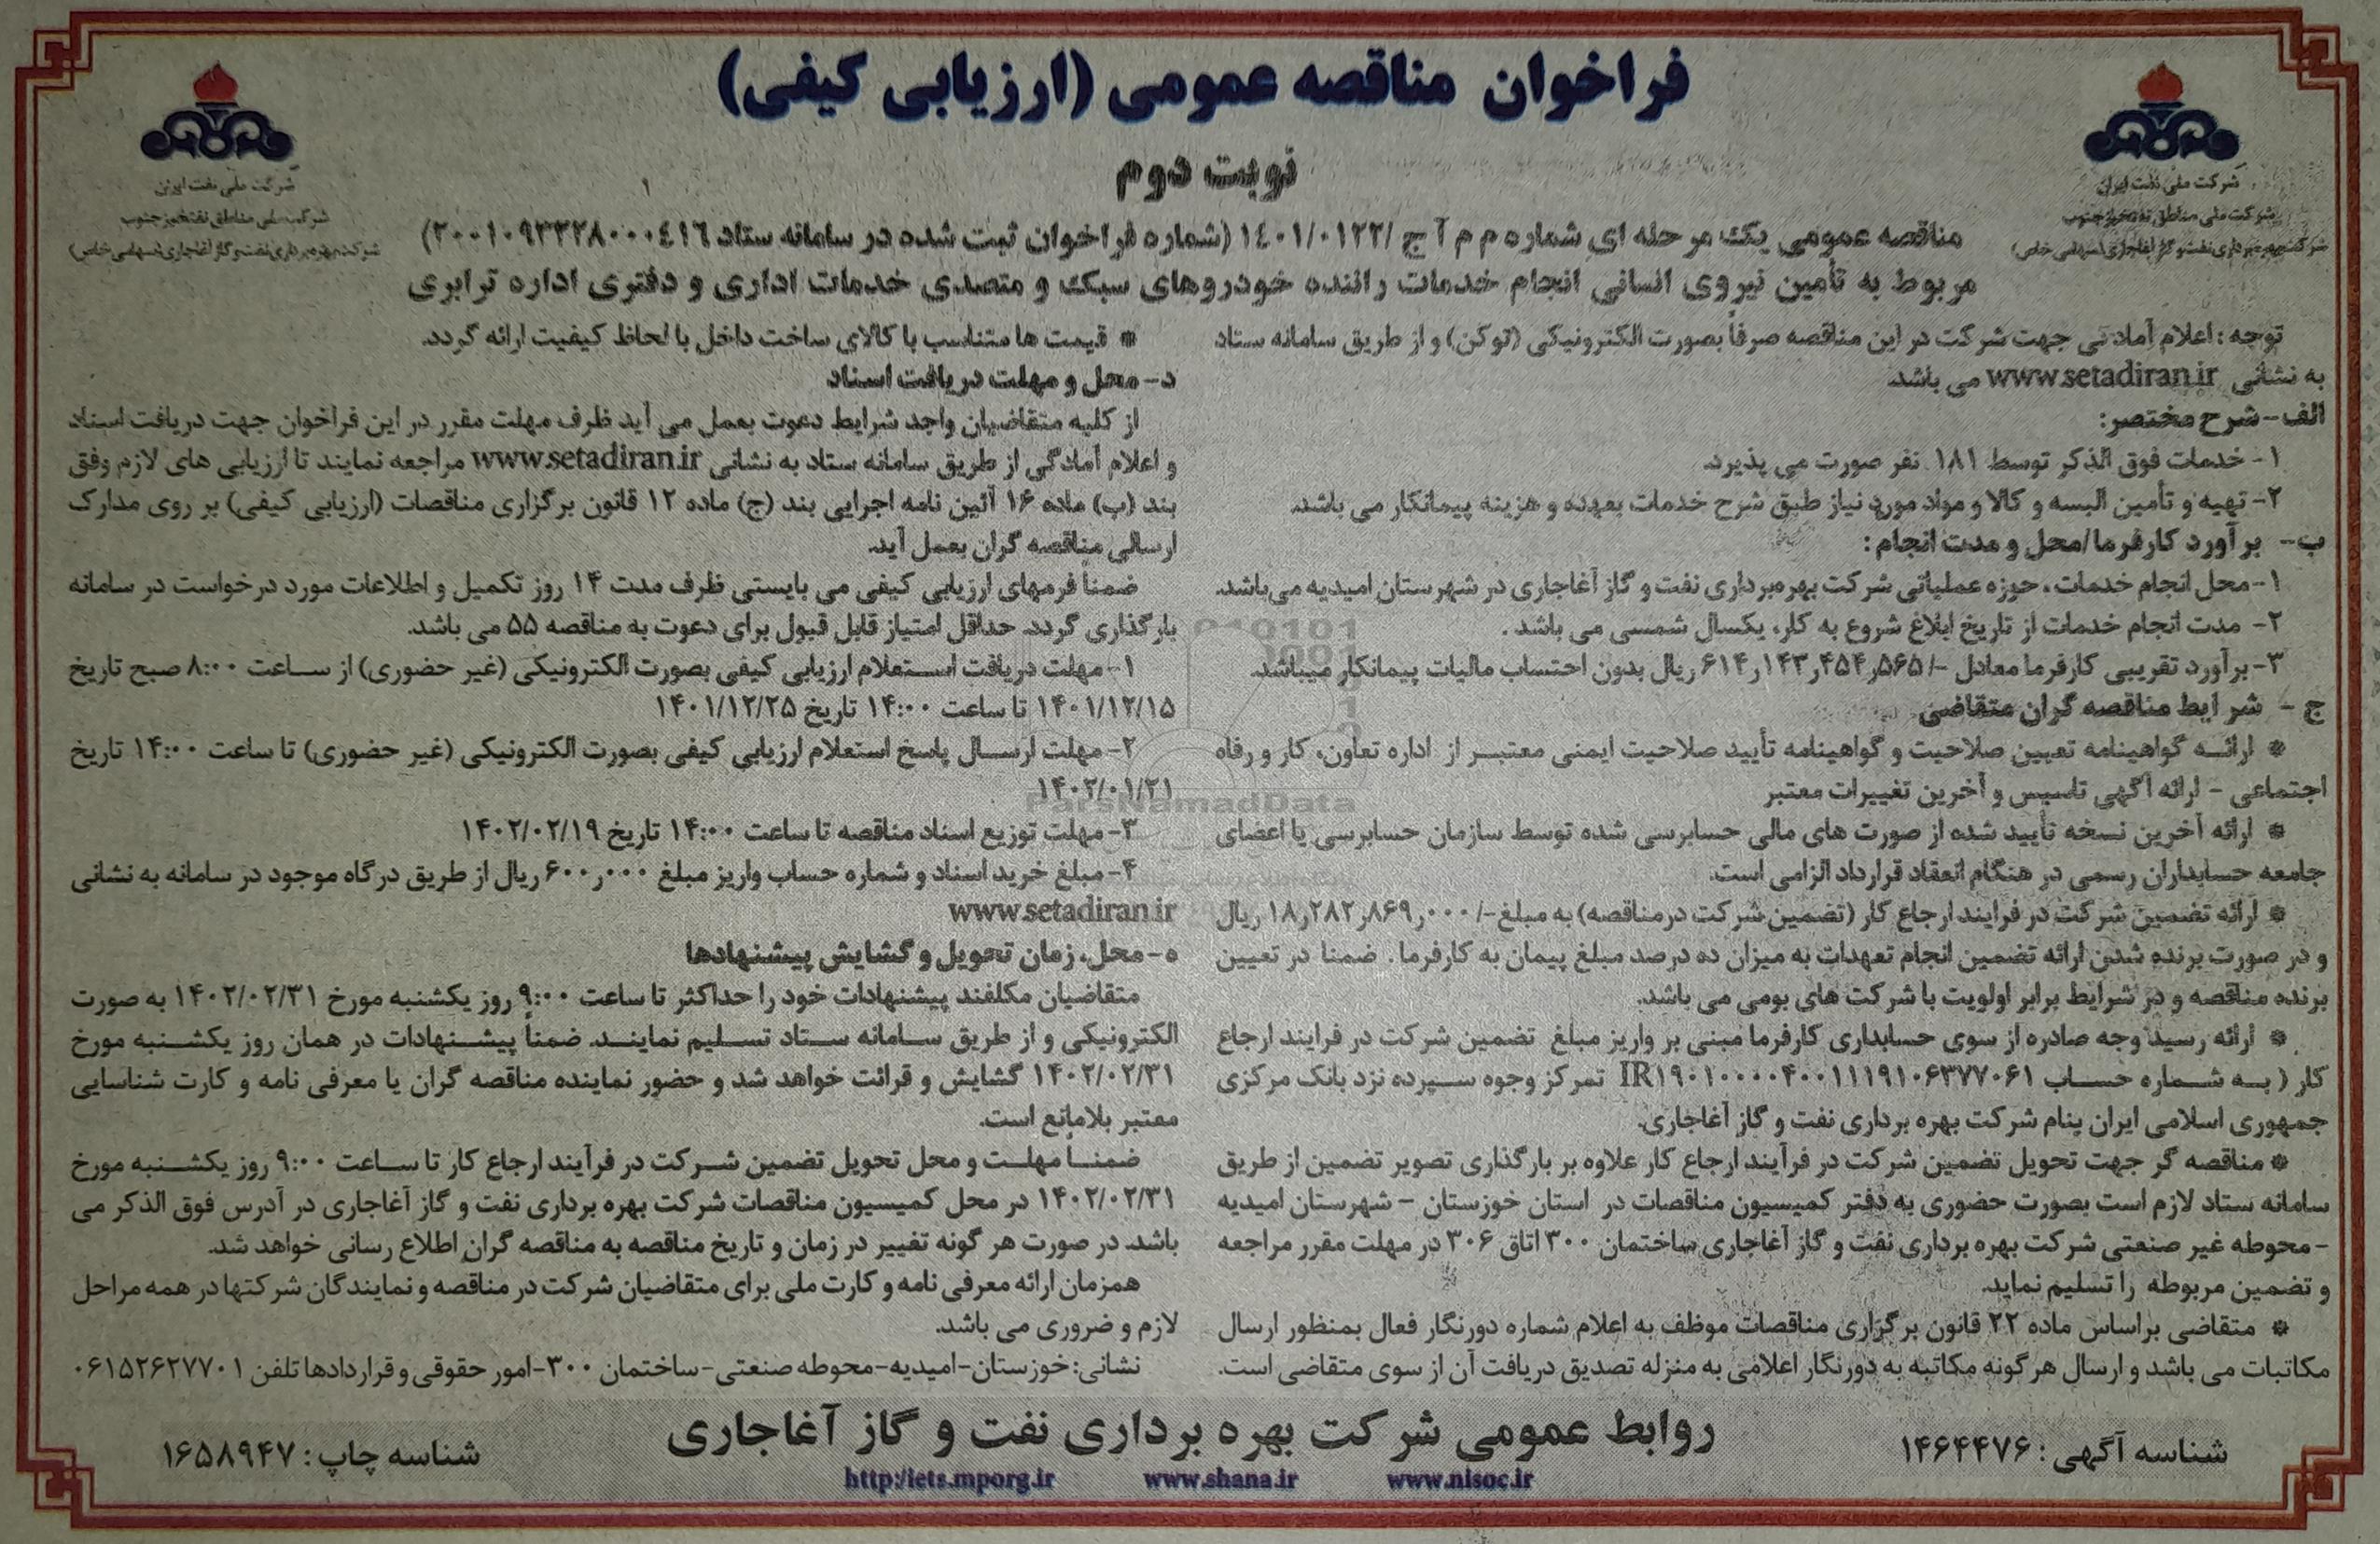 فراخوان مناقصه عمومی (ارزیابی کیفی)
نوبت دوم
شرکت ملی نفت ایران
شرکت ملی مناطق نفتخیز جنوب
شرکت بهره برداری نفت و گاز آغاجاری (سهامی خاص)
شرکت ملی نفت ایران
شرکت ملی مناطق نفتخیز جنوب
شرکت بهره برداری نفت و گاز آغاجاری (سهامی خاص)
مناقصه عمومی یک مرحله ای شماره م م آ ج /۱۴۰۱/۰۱۲۲ (شماره فراخوان ثبت شده در سامانه ستاد ۲۰۰۱۰۹۳۳۲۸۰۰۰۴۱۶)
مربوط به تأمین نیروی انسانی انجام خدمات راننده خودروهای سبک و متصدی خدمات اداری و دفتری اداره ترابری
توجه : اعلام آمادگی جهت شرکت در این مناقصه صرفاً بصورت الکترونیکی (توکن) و از طریق سامانه ستاد
به نشانی www.setadiran.ir می باشد.
الف- شرح مختصر:
۱- خدمات فوق الذکر توسط ۱۸۱ نفر صورت می پذیرد.
۲- تهیه و تأمین البسه و کالا و مواد مورد نیاز طبق شرح خدمات بعهده و هزینه پیمانکار می باشد.
ب- برآورد کارفرما/محل و مدت انجام :
۱- محل انجام خدمات، حوزه عملیاتی شرکت بهره‌برداری نفت و گاز آغاجاری در شهرستان امیدیه می‌باشد.
۲- مدت انجام خدمات از تاریخ ابلاغ شروع به کار، یکسال شمسی می باشد .
۳- برآورد تقریبی کارفرما معادل -/۶۱۴٫۱۴۳٫۴۵۴٫۵۶۵ ریال بدون احتساب مالیات پیمانکار میباشد.
ج - شرایط مناقصه گران متقاضی
* ارائـه گواهینامه تعیین صلاحیت و گواهینامه تأیید صلاحیت ایمنی معتبـر از اداره تعاون، کار و رفاه
اجتماعی - ارائه آگهی تاسیس و آخرین تغییرات معتبر
* ارائه آخرین نسخه تأیید شده از صورت های مالی حسابرسی شده توسط سازمان حسابرسی یا اعضای
جامعه حسابداران رسمی در هنگام انعقاد قرارداد الزامی است.
* ارائه تضمین شرکت در فرایند ارجاع کار (تضمین شرکت درمناقصه) به مبلغ-/۱۸٫۲۸۲٫۸۶۹٫۰۰۰ ریال
و در صورت برنده شدن ارائه تضمین انجام تعهدات به میزان ده درصد مبلغ پیمان به کارفرما . ضمنا در تعیین
برنده مناقصه و در شرایط برابر اولویت با شرکت های بومی می باشد.
* ارائه رسید وجه صادره از سوی حسابداری کارفرما مبنی بر واریز مبلغ تضمین شرکت در فرایند ارجاع
کار ( به شـماره حسـاب IR۱۹۰۱۰۰۰۰۴۰۰۱۱۱۹۱۰۶۳۷۷۰۶۱ تمرکز وجوه سـپرده نزد بانک مرکزی
جمهوری اسلامی ایران بنام شرکت بهره برداری نفت و گاز آغاجاری.
* مناقصه گر جهت تحویل تضمین شرکت در فرآیند ارجاع کار علاوه بر بارگذاری تصویر تضمین از طریق
سامانه ستاد لازم است بصورت حضوری به دفتر کمیسیون مناقصات در استان خوزستان - شهرستان امیدیه
- محوطه غیر صنعتی شرکت بهره برداری نفت و گاز آغاجاری ساختمان ۳۰۰ اتاق ۳۰۶ در مهلت مقرر مراجعه
و تضمین مربوطه را تسلیم نماید.
* متقاضی براساس ماده ۲۲ قانون برگزاری مناقصات موظف به اعلام شماره دورنگار فعال بمنظور ارسال
مکاتبات می باشد و ارسال هرگونه مکاتبه به دورنگار اعلامی به منزله تصدیق دریافت آن از سوی متقاضی است.
* قیمت ها متناسب با کالای ساخت داخل با لحاظ کیفیت ارائه گردد.
د- محل و مهلت دریافت اسناد
از کلیه متقاضیان واجد شرایط دعوت بعمل می آید ظرف مهلت مقرر در این فراخوان جهت دریافت اسناد
و اعلام آمادگی از طریق سامانه ستاد به نشانی www.setadiran.ir مراجعه نمایند تا ارزیابی های لازم وفق
بند (ب) ماده ۱۶ آئین نامه اجرایی بند (ج) ماده ۱۲ قانون برگزاری مناقصات (ارزیابی کیفی) بر روی مدارک
ارسالی مناقصه گران بعمل آید.
ضمناً فرمهای ارزیابی کیفی می بایستی ظرف مدت ۱۴ روز تکمیل و اطلاعات مورد درخواست در سامانه
بارگذاری گردد. حداقل امتیاز قابل قبول برای دعوت به مناقصه ۵۵ می باشد.
۱- مهلت دریافت اسـتعلام ارزیابی کیفی بصورت الکترونیکی (غیر حضوری) از سـاعت ۸:۰۰ صبح تاریخ
۱۴۰۱/۱۲/۱۵ تا ساعت ۱۴:۰۰ تاریخ ۱۴۰۱/۱۲/۲۵
۲- مهلت ارسـال پاسخ استعلام ارزیابی کیفی بصورت الکترونیکی (غیر حضوری) تا ساعت ۱۴:۰۰ تاریخ
۱۴۰۲/۰۱/۲۱
۳- مهلت توزیع اسناد مناقصه تا ساعت ۱۴:۰۰ تاریخ ۱۴۰۲/۰۲/۱۹
۴- مبلغ خرید اسناد و شماره حساب واریز مبلغ ۶۰۰٫۰۰۰ ریال از طریق درگاه موجود در سامانه به نشانی
www.setadiran.ir
ه- محل، زمان تحویل و گشایش پیشنهادها
متقاضیان مکلفند پیشنهادات خود را حداکثر تا ساعت ۹:۰۰ روز یکشنبه مورخ ۱۴۰۲/۰۲/۳۱ به صورت
الکترونیکی و از طریق سـامانه سـتاد تسـلیم نماینـد. ضمناً پیشـنهادات در همان روز یکشـنبه مورخ
۱۴۰۲/۰۲/۳۱ گشایش و قرائت خواهد شد و حضور نماینده مناقصه گران با معرفی نامه و کارت شناسایی
معتبر بلامانع است.
ضمنـاً مهلـت و محل تحویل تضمین شـرکت در فرآیند ارجاع کار تا سـاعت ۹:۰۰ روز یکشـنبه مورخ
۱۴۰۲/۰۲/۳۱ در محل کمیسیون مناقصات شرکت بهره برداری نفت و گاز آغاجاری در آدرس فوق الذکر می
باشد. در صورت هر گونه تغییر در زمان و تاریخ مناقصه به مناقصه گران اطلاع رسانی خواهد شد.
همزمان ارائه معرفی نامه و کارت ملی برای متقاضیان شرکت در مناقصه و نمایندگان شرکتها در همه مراحل
لازم و ضروری می باشد.
نشانی: خوزستان-امیدیه-محوطه صنعتی-ساختمان ۳۰۰-امور حقوقی و قراردادها تلفن ۰۶۱۵۲۶۲۷۷۰۱
شناسه آگهی : ۱۴۶۴۴۷۶
روابط عمومی شرکت بهره برداری نفت و گاز آغاجاری
شناسه چاپ : ۱۶۵۸۹۴۷
www.nisoc.ir www.shana.ir http://iets.mporg.ir
ParsNamadData